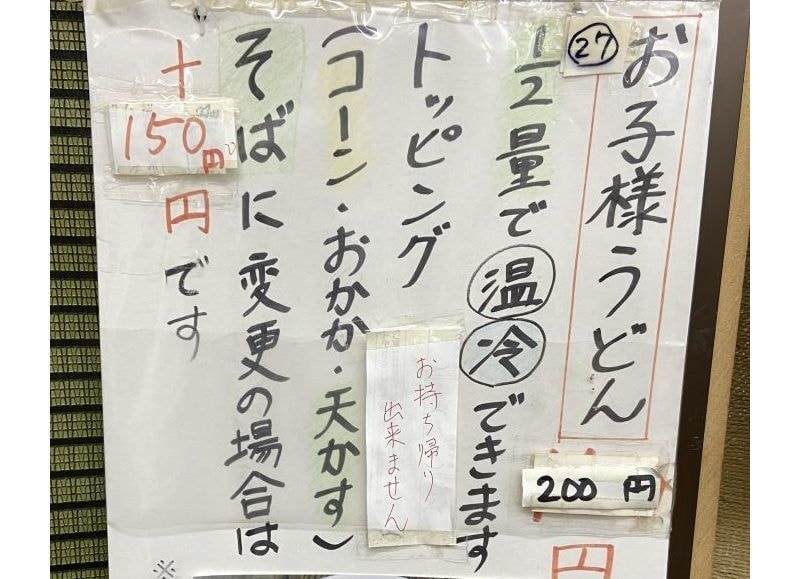 お子様うどん
㉗
200 円
円
1/2量で温冷できます
トッピング
(コーン・おかか・天かす)
お持ち帰り
出来ません
そばに変更の場合は
+150円
円です
※